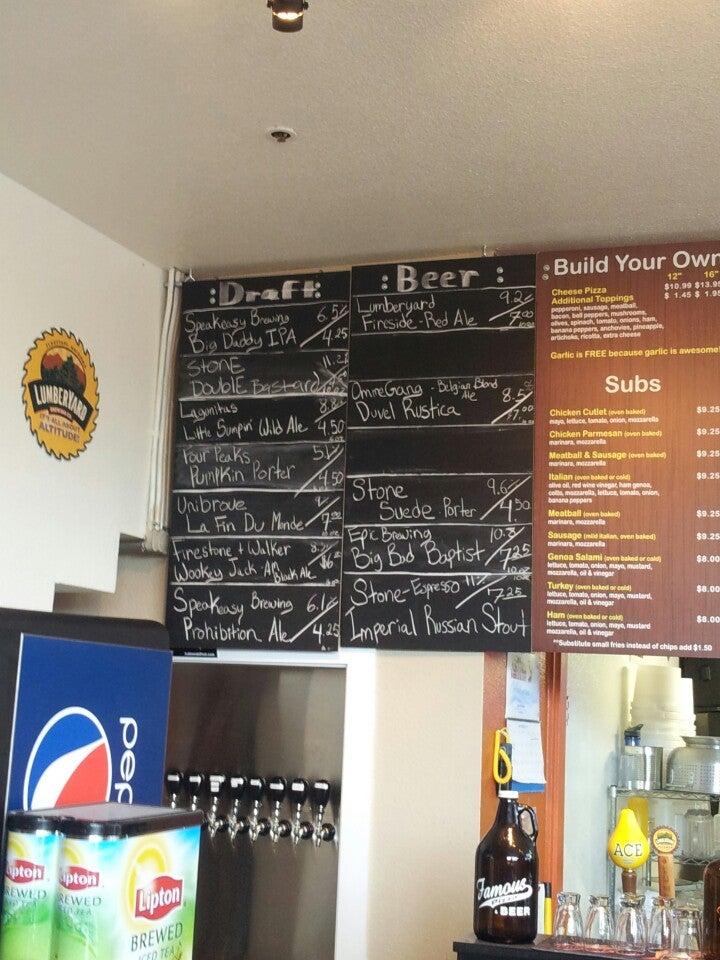 Draft
Speakeasy Brewing 6.5%
Big Daddy IPA 4.25
Stone 11.2
Double Bastard
Lagunitas 8.8
Little Sumpin' Wild Ale 4.50
Four Peaks 5.1
Pumpkin Porter 4.50
Unibroue
La Fin Du Monde 7.00
Firestone + Walker
Wookey Jack Black Ale
Speakeasy Brewing 6.1%
Prohibition Ale 4.25
Beer
Lumberyard 9.2%
Fireside-Red Ale 7.00
OmmeGang - Belgian Blond Ale 8.5%
Duvel Rustica 7.00
Stone 9.6%
Suede Porter 4.50
Epic Brewing 10.8
Big Bad Baptist 7.25
Stone-Espresso 11% 7.25
Imperial Russian Stout
Build Your Own
12" 16"
Cheese Pizza $10.99 $13.95
Additional Toppings $ 1.45 $ 1.95
pepperoni, sausage, meatball,
bacon, bell peppers, mushrooms,
olives, spinach, tomato, onions, ham,
banana peppers, anchovies, pineapple,
artichoke, ricotta, extra cheese
Garlic is FREE because garlic is awesome!
Subs
Chicken Cutlet (oven baked) $9.25
mayo, lettuce, tomato, onion, mozzarella
Chicken Parmesan (oven baked) $9.25
marinara, mozzarella
Meatball & Sausage (oven baked) $9.25
marinara, mozzarella
Italian (oven baked or cold) $9.25
olive oil, red wine vinegar, ham genoa,
cotto, mozzarella, lettuce, tomato, onion,
banana peppers
Meatball (oven baked) $9.25
marinara, mozzarella
Sausage (mild italian, oven baked) $9.25
marinara, mozzarella
Genoa Salami (oven baked or cold) $8.00
lettuce, tomato, onion, mayo, mustard
mozzarella, oil & vinegar
Turkey (oven baked or cold) $8.00
lettuce, tomato, onion, mayo, mustard
mozzarella, oil & vinegar
Ham (oven baked or cold) $8.00
lettuce, tomato, onion, mayo, mustard
mozzarella, oil & vinegar
**Substitute small fries instead of chips add $1.50
LUMBERYARD
BREWING CO.
IT'S ALL ABOUT
ALTITUDE!
pep
Lipton
BREWED
ICED TEA
Lipton
BREWED
ICED TEA
Lipton
BREWED
ICED TEA
Famous
PIZZA
& BEER
ACE